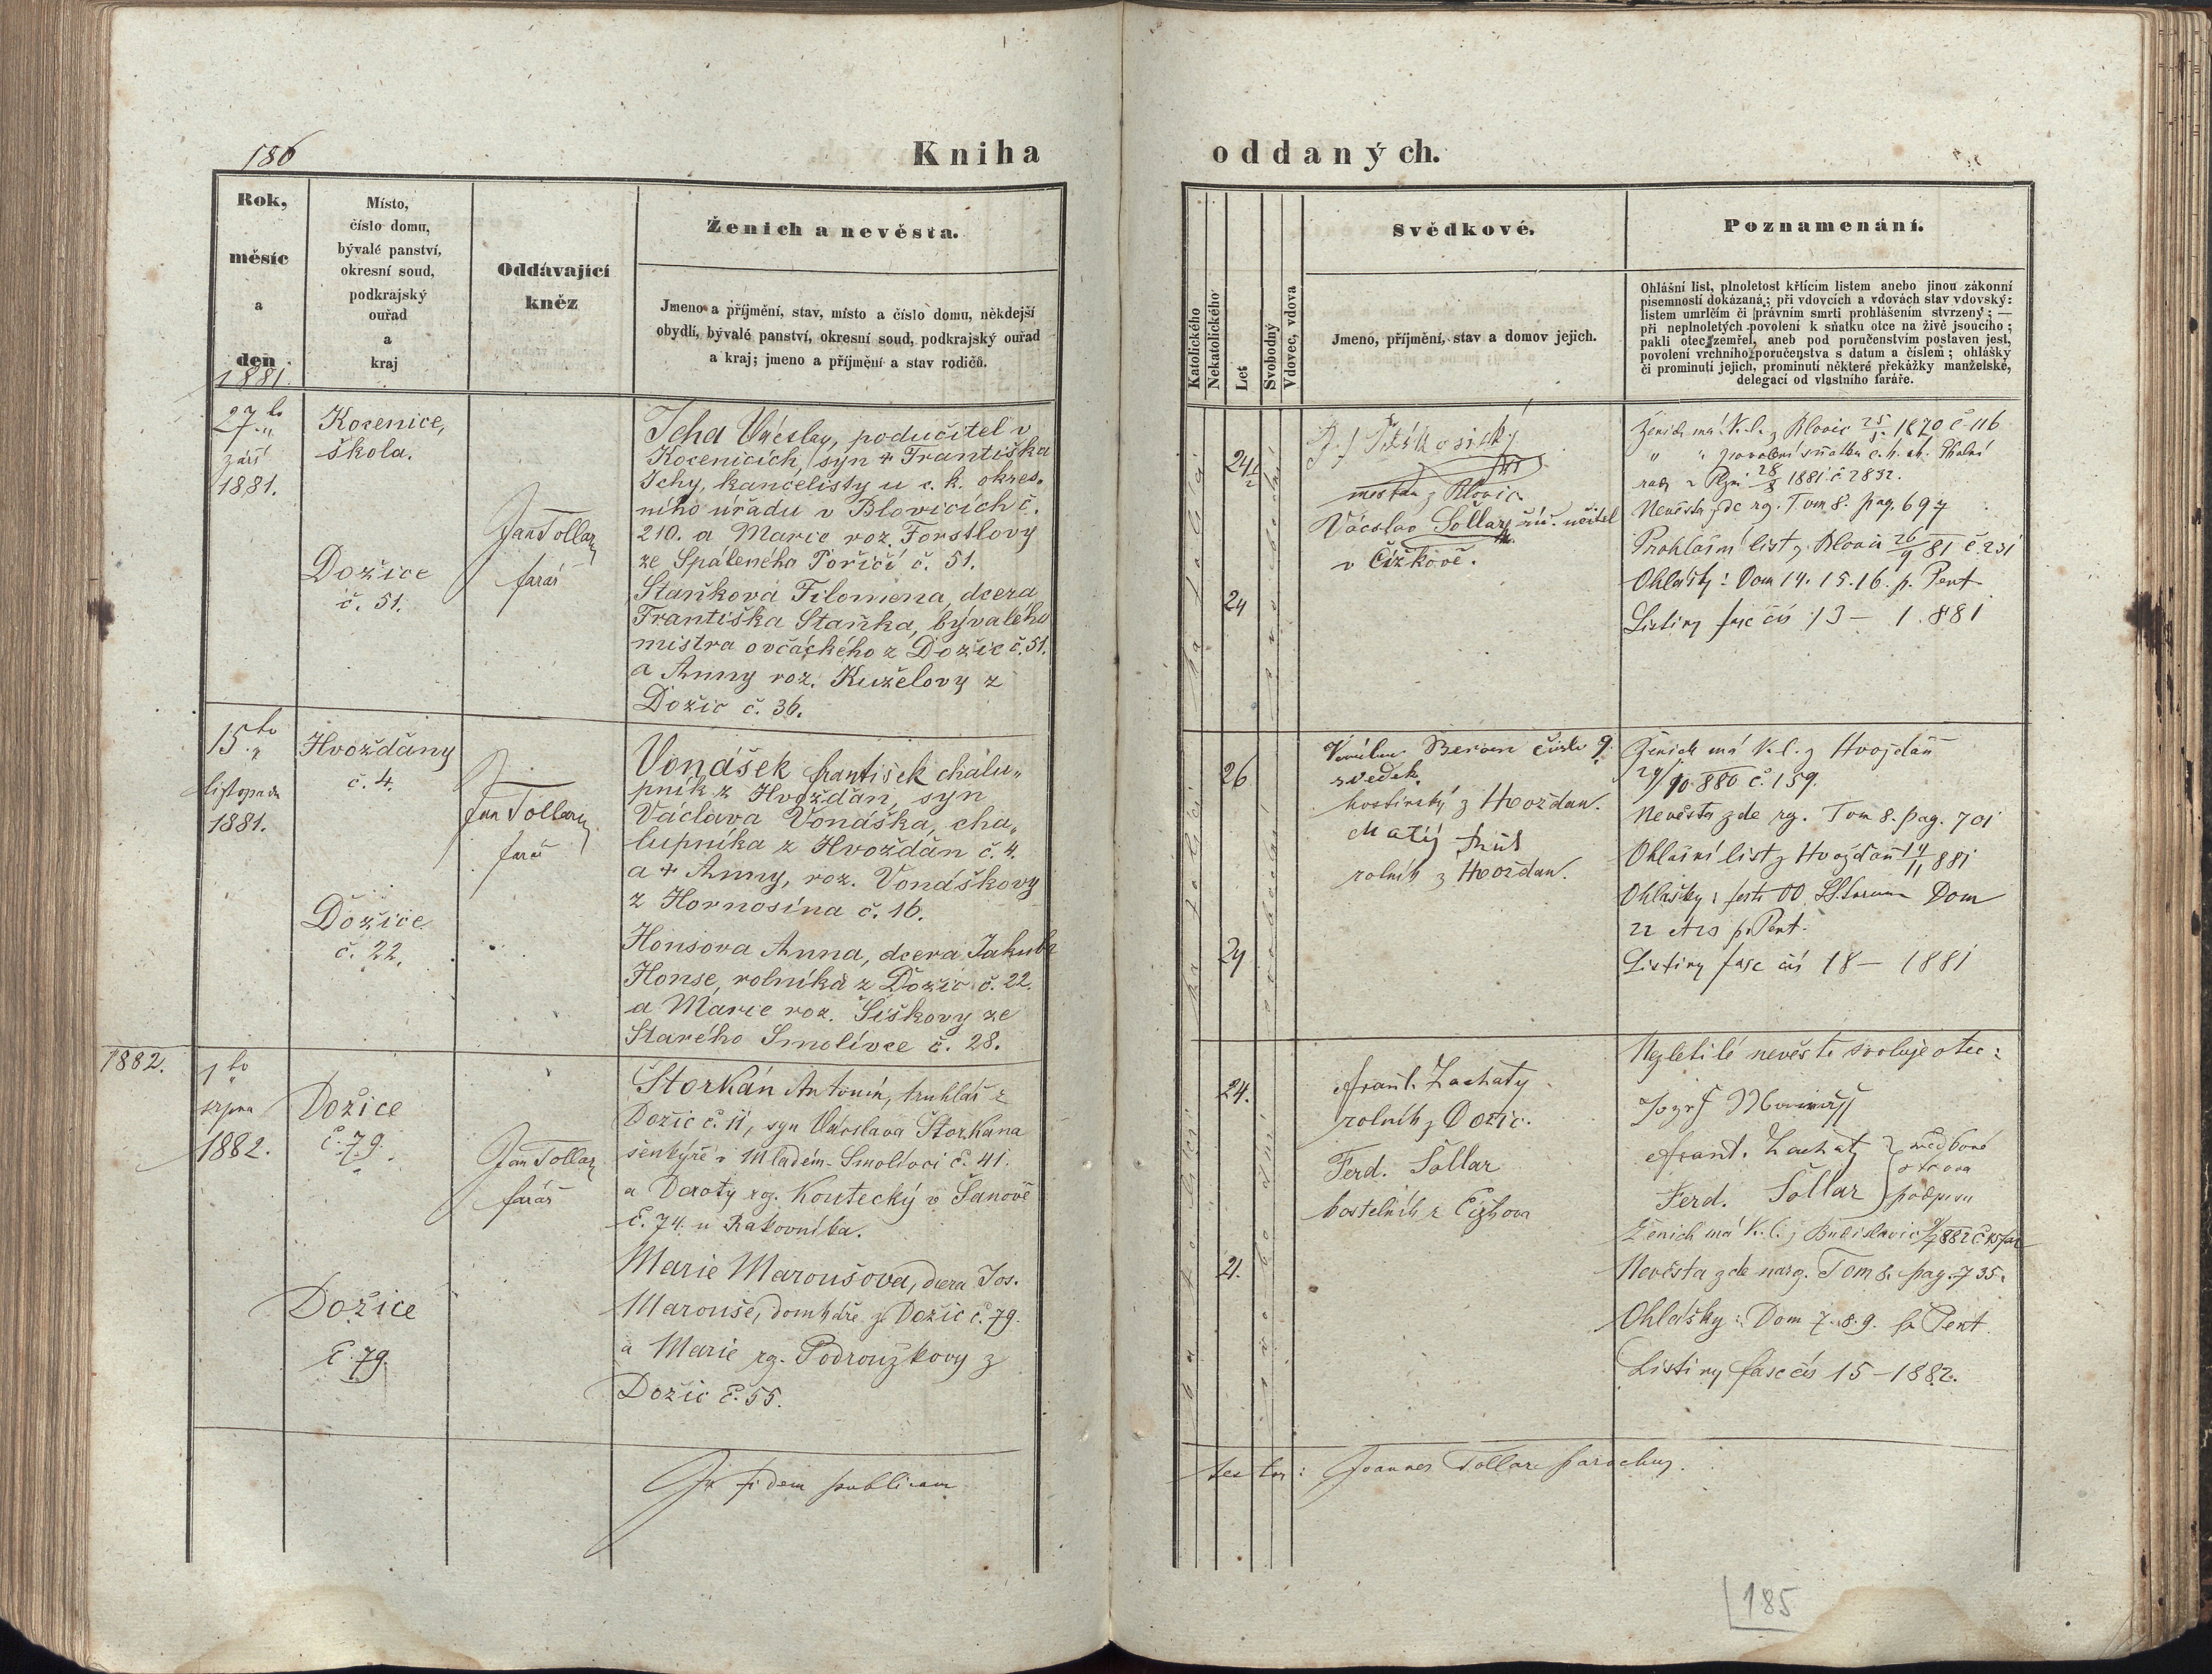 186
Kniha
oddaných.
Rok,
měsíc
a
den
1881.
Místo,
číslo domu,
bývalé panství,
okresní soud,
podkrajský
ouřad
a
kraj
Oddávající
kněz
Ženich a nevěsta.
Jmeno a příjmění, stav, místo a číslo domu, někdejší
obydlí, bývalé panství, okresní soud, podkrajský ouřad
a kraj; jmeno a příjmění a stav rodičů.
Katolického
Nekatolického
Let
Svobodný
Vdovec, vdova
Svědkové.
Jmeno, příjmění, stav a domov jejich.
Poznamenání.
Ohlášní list, plnoletost křtícím listem anebo jinou zákonní
písemností dokázaná; při vdovcích a vdovách stav vdovský:
listem umrlčím či právním smrti prohlášením stvrzený; —
při neplnoletých povolení k sňatku otce na živě jsoucího;
pakli otec zemřel, aneb pod poručenstvím postaven jest,
povolení vrchního poručenstva s datum a číslem; ohlášky
či prominutí jejich, prominutí některé překážky manželské,
delegací od vlastního faráře.
27.ho
září
1881.
Kocenice,
škola.
Dožice
č. 51.
Jan Tollar
farář
Icha Václav, podučitel v
Kocenicích, syn + Františka
Ichy, kancelisty u c. k. okres-
ního úřadu v Blovicích č.
210. a Marie roz. Forstlovy
ze Spáleného Poříčí č. 51.
Staňkova Filomena, dcera
Františka Staňka, bývalého
mistra ovčáckého z Dožic č. 51.
a Anny roz. Kuželovy z
Dožic č. 36.
katolický
24 1/2
24
svobodní
měšťan z Blovic
Václav Šollar učitel
v Čížkově.
Ženich má k. l. z Blovic 1870 č 116
1881 č 2832.
Nevěsta zde rz. Tom 8. pag. 697
Prohlášní list z Blovic 26/9 81 č. 231
Ohlášky: Dom 14. 15. 16. p. Pent
Listiny fasc čís 13 — 1881
15.ho
listopadu
1881.
Hvožďany
č. 4.
Dožice
č. 22.
Jan Tollar
farář
Vonášek František chalu-
pník z Hvožďan, syn
Václava Vonáška, cha-
lupníka z Hvožďan č. 4.
a + Anny, roz. Vonáškovy
z Hornosína č. 16.
Honsova Anna, dcera Jakuba
Honse, rolníka z Dožic č. 22.
a Marie roz. Šiškovy ze
Starého Smolivce č. 28.
katolický
26
24
svobodní
Beran číslo 9.
svědek.
hostinský z Hvožďan.
Matěj
rolník z Hvožďan.
Ženich má k. l. z Hvožďan
29/10 880 č. 159.
Nevěsta zde rz. Tom 8. pag. 701
Ohlášní list z Hvožďan 14/11 881
Ohlášky: festo OO. SS. Dom
22 p. Pent.
Listiny fasc čís 18 — 1881
1882.
1.ho
srpna
1882.
Dožice
č. 79.
Dožice
č. 79.
Jan Tollar
farář
Štorkán Antonín, truhlář z
Dožic č. 11, syn Václava Štorkana
šenkýře v Mladém-Smolivci č. 41.
a Doroty rz. Koutecký v Šanově
č. 74. u Rakovníka.
Marie Maroušova, dcera Jos.
Marouše, domkáře z Dožic č. 79.
a Marie rz. Podrouzkovy z
Dožic č. 55.
katolický
24.
21.
svobodní
Frant. Lachatý
rolník z Dožic.
Ferd. Šollar
kostelník z Čížkova
Nezletilé nevěstě svoluje otec:
Jozef
Frant. Lachatý
Ferd. Šollar
svědkové
otcova
podpisu
Nevěsta zde narz. Tom 8. pag. 735.
Ohlášky: Dom 7. 8. 9. p. Pent.
Listiny fasc čís 15 — 1882.
In fidem publicam
testor: Joannes Tollar parochus.
185